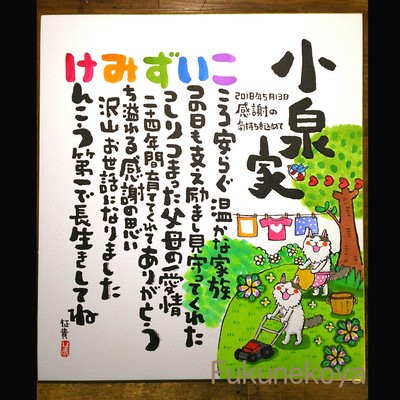 小泉家
2018年5月13日
感謝の
気持ちを込めて
こいずみけ
こころ安らぐ温かな家族
いつの日も支え励まし見守ってくれた
ずっしりつまった父母の愛情
二十四年間育ててくれてありがとう
みち溢れる感謝の思い
沢山お世話になりました
けんこう第一で長生きしてね
柾貴
Fukunekoya